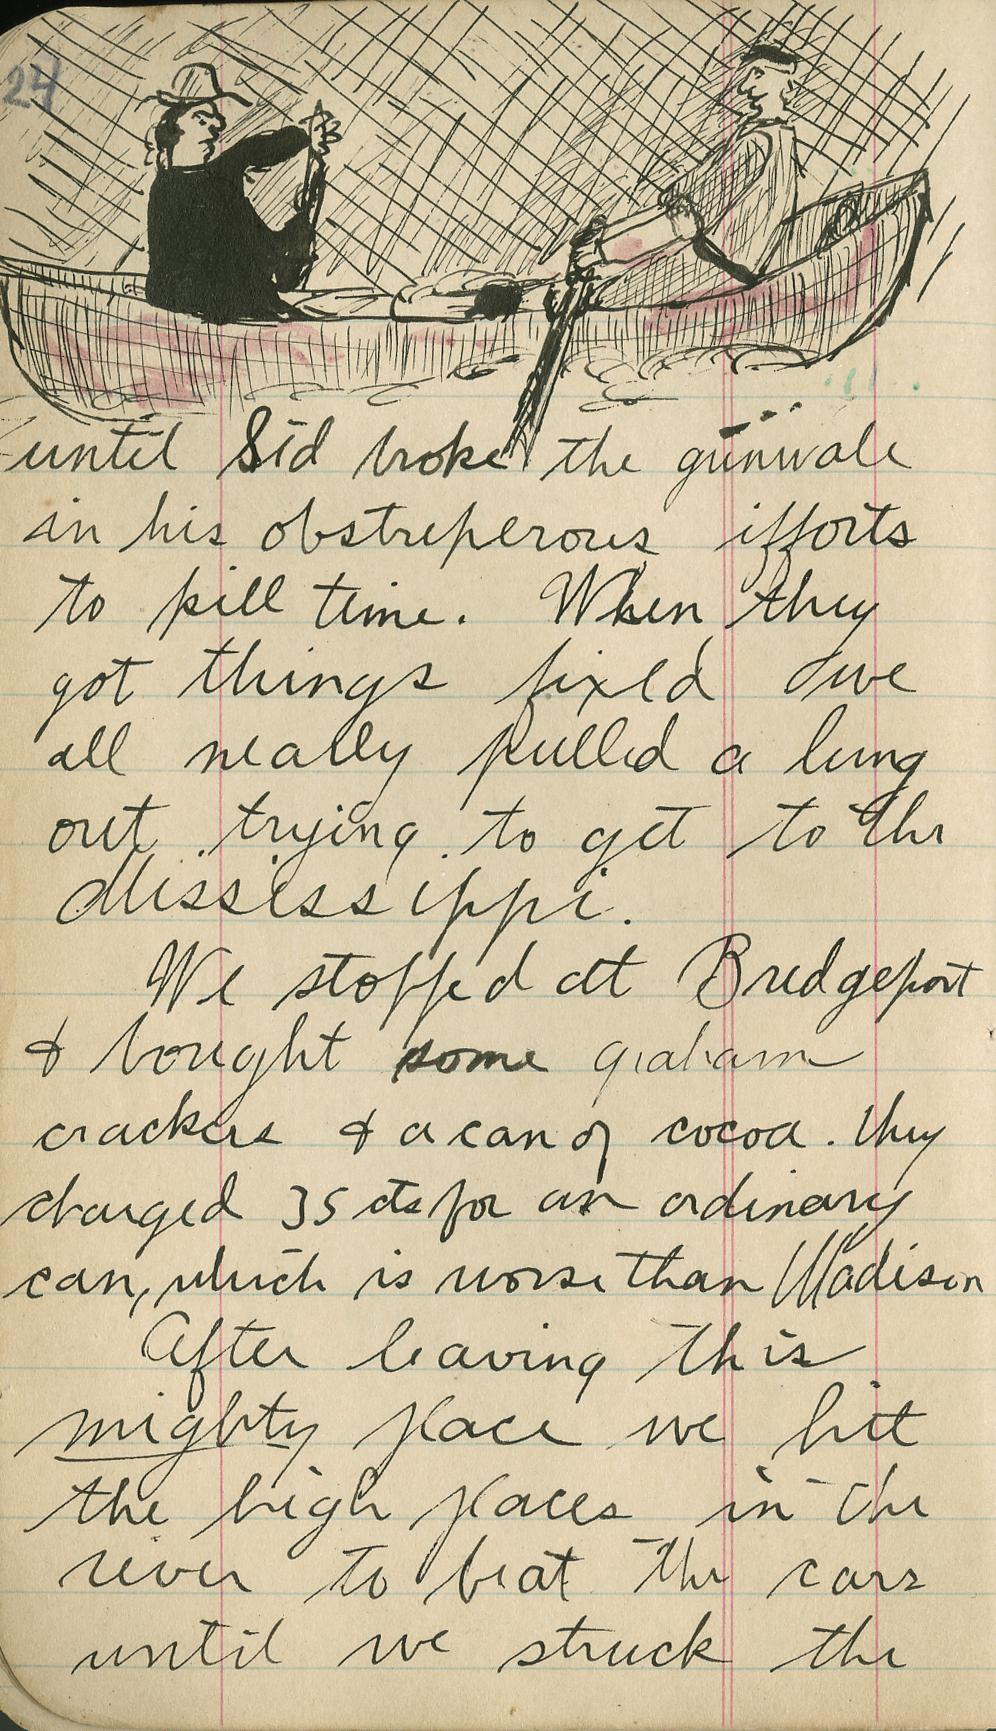 24
until Sid broke the gunwale
in his obstreperous efforts
to kill time. When they
got things fixed we
all nearly pulled a lung
out trying to get to the
Mississippi.
We stopped at Bridgeport
& bought some graham
crackers & a can of cocoa. they
charged 35 cts for an ordinary
can, which is worse than Madison
After leaving this
mighty place we hit
the high places in the
river to beat the cars
until we struck the